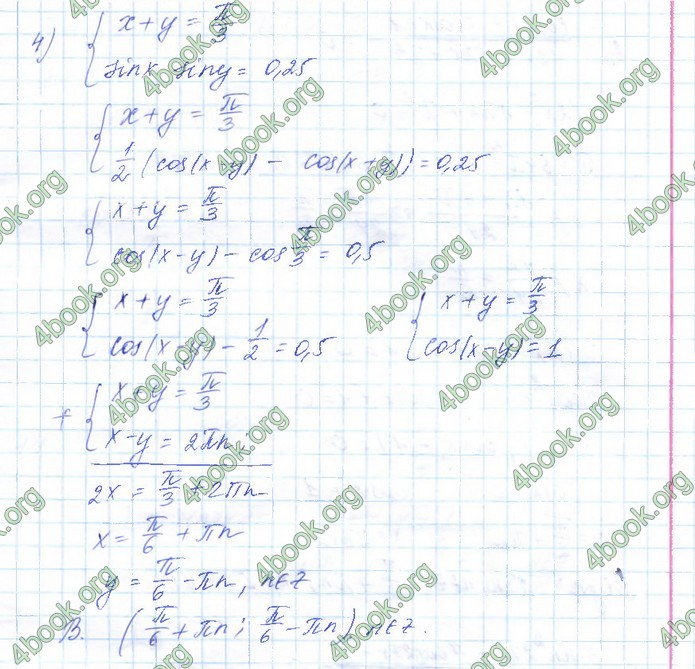 4) { x + y = π/3
sinx · siny = 0,25
{ x + y = π/3
1/2 (cos(x-y) - cos(x+y)) = 0,25
{ x + y = π/3
cos(x-y) - cos π/3 = 0,5
{ x + y = π/3
cos(x-y) - 1/2 = 0,5
{ x + y = π/3
cos(x-y) = 1
+ { x + y = π/3
x - y = 2πn;
2x = π/3 + 2πn
x = π/6 + πn
y = π/6 - πn, n∈Z
В. (π/6 + πn; π/6 - πn) n∈Z.
4book.org